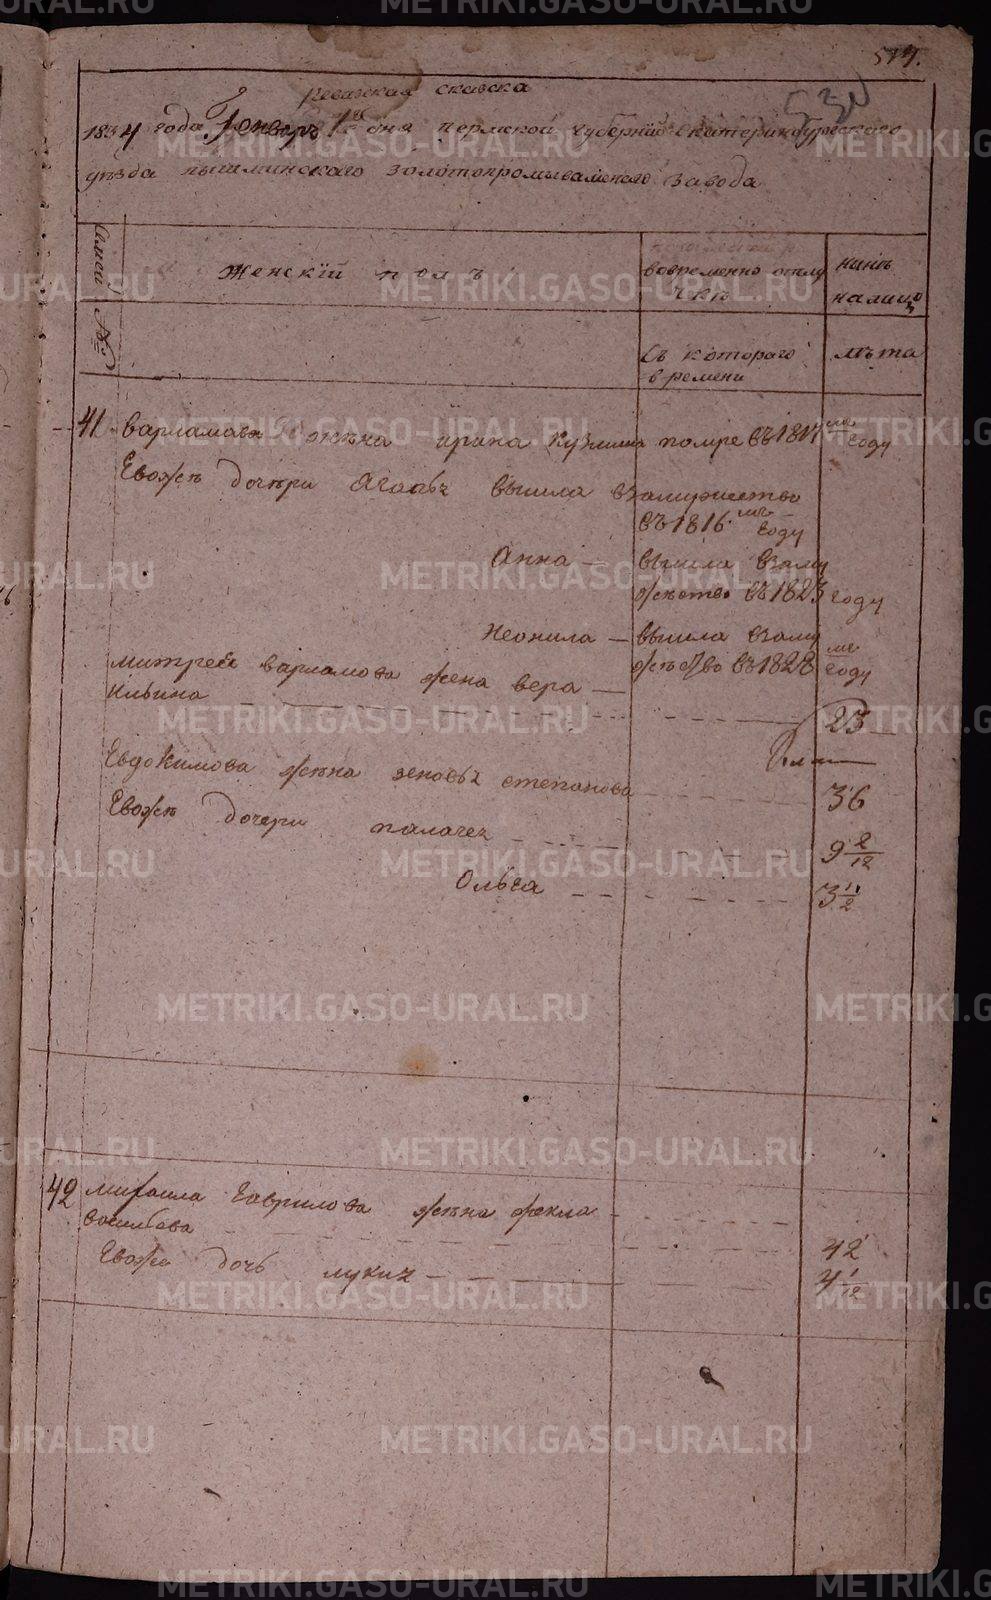 514.
530
Ревазская сказска
1834 года Генваря 1го дня пермской Губернiи Екатеринбургскаго
уѣзда пышминскаго золотопромываленаго завода
Семьи
Женскiй полъ
вовременно отлу
чкѣ
нынѣ
налицо
№
Съ котораго
времени
лѣта
41 варламова жѣна ирина Кузмина помре въ 1817 ме
году
Евожѣ дочѣри Агафья вышла взамужество
въ 1816 ме
году
Анна — вышла взаму
жѣство въ 1823 году
Неонила — вышла взаму
жѣство въ 1828 ме
году
митрея варламова жена вера —
Ильина 25
Евдокимова жѣна зеновья степанова 36
Евожѣ дочери палагея 9 2/12
Ольга 3 1/2
42 михаила Гаврилова жѣна фекла
васильева 42
Евожа дочь лукия 4 1/12
METRIKI.GASO-URAL.RU